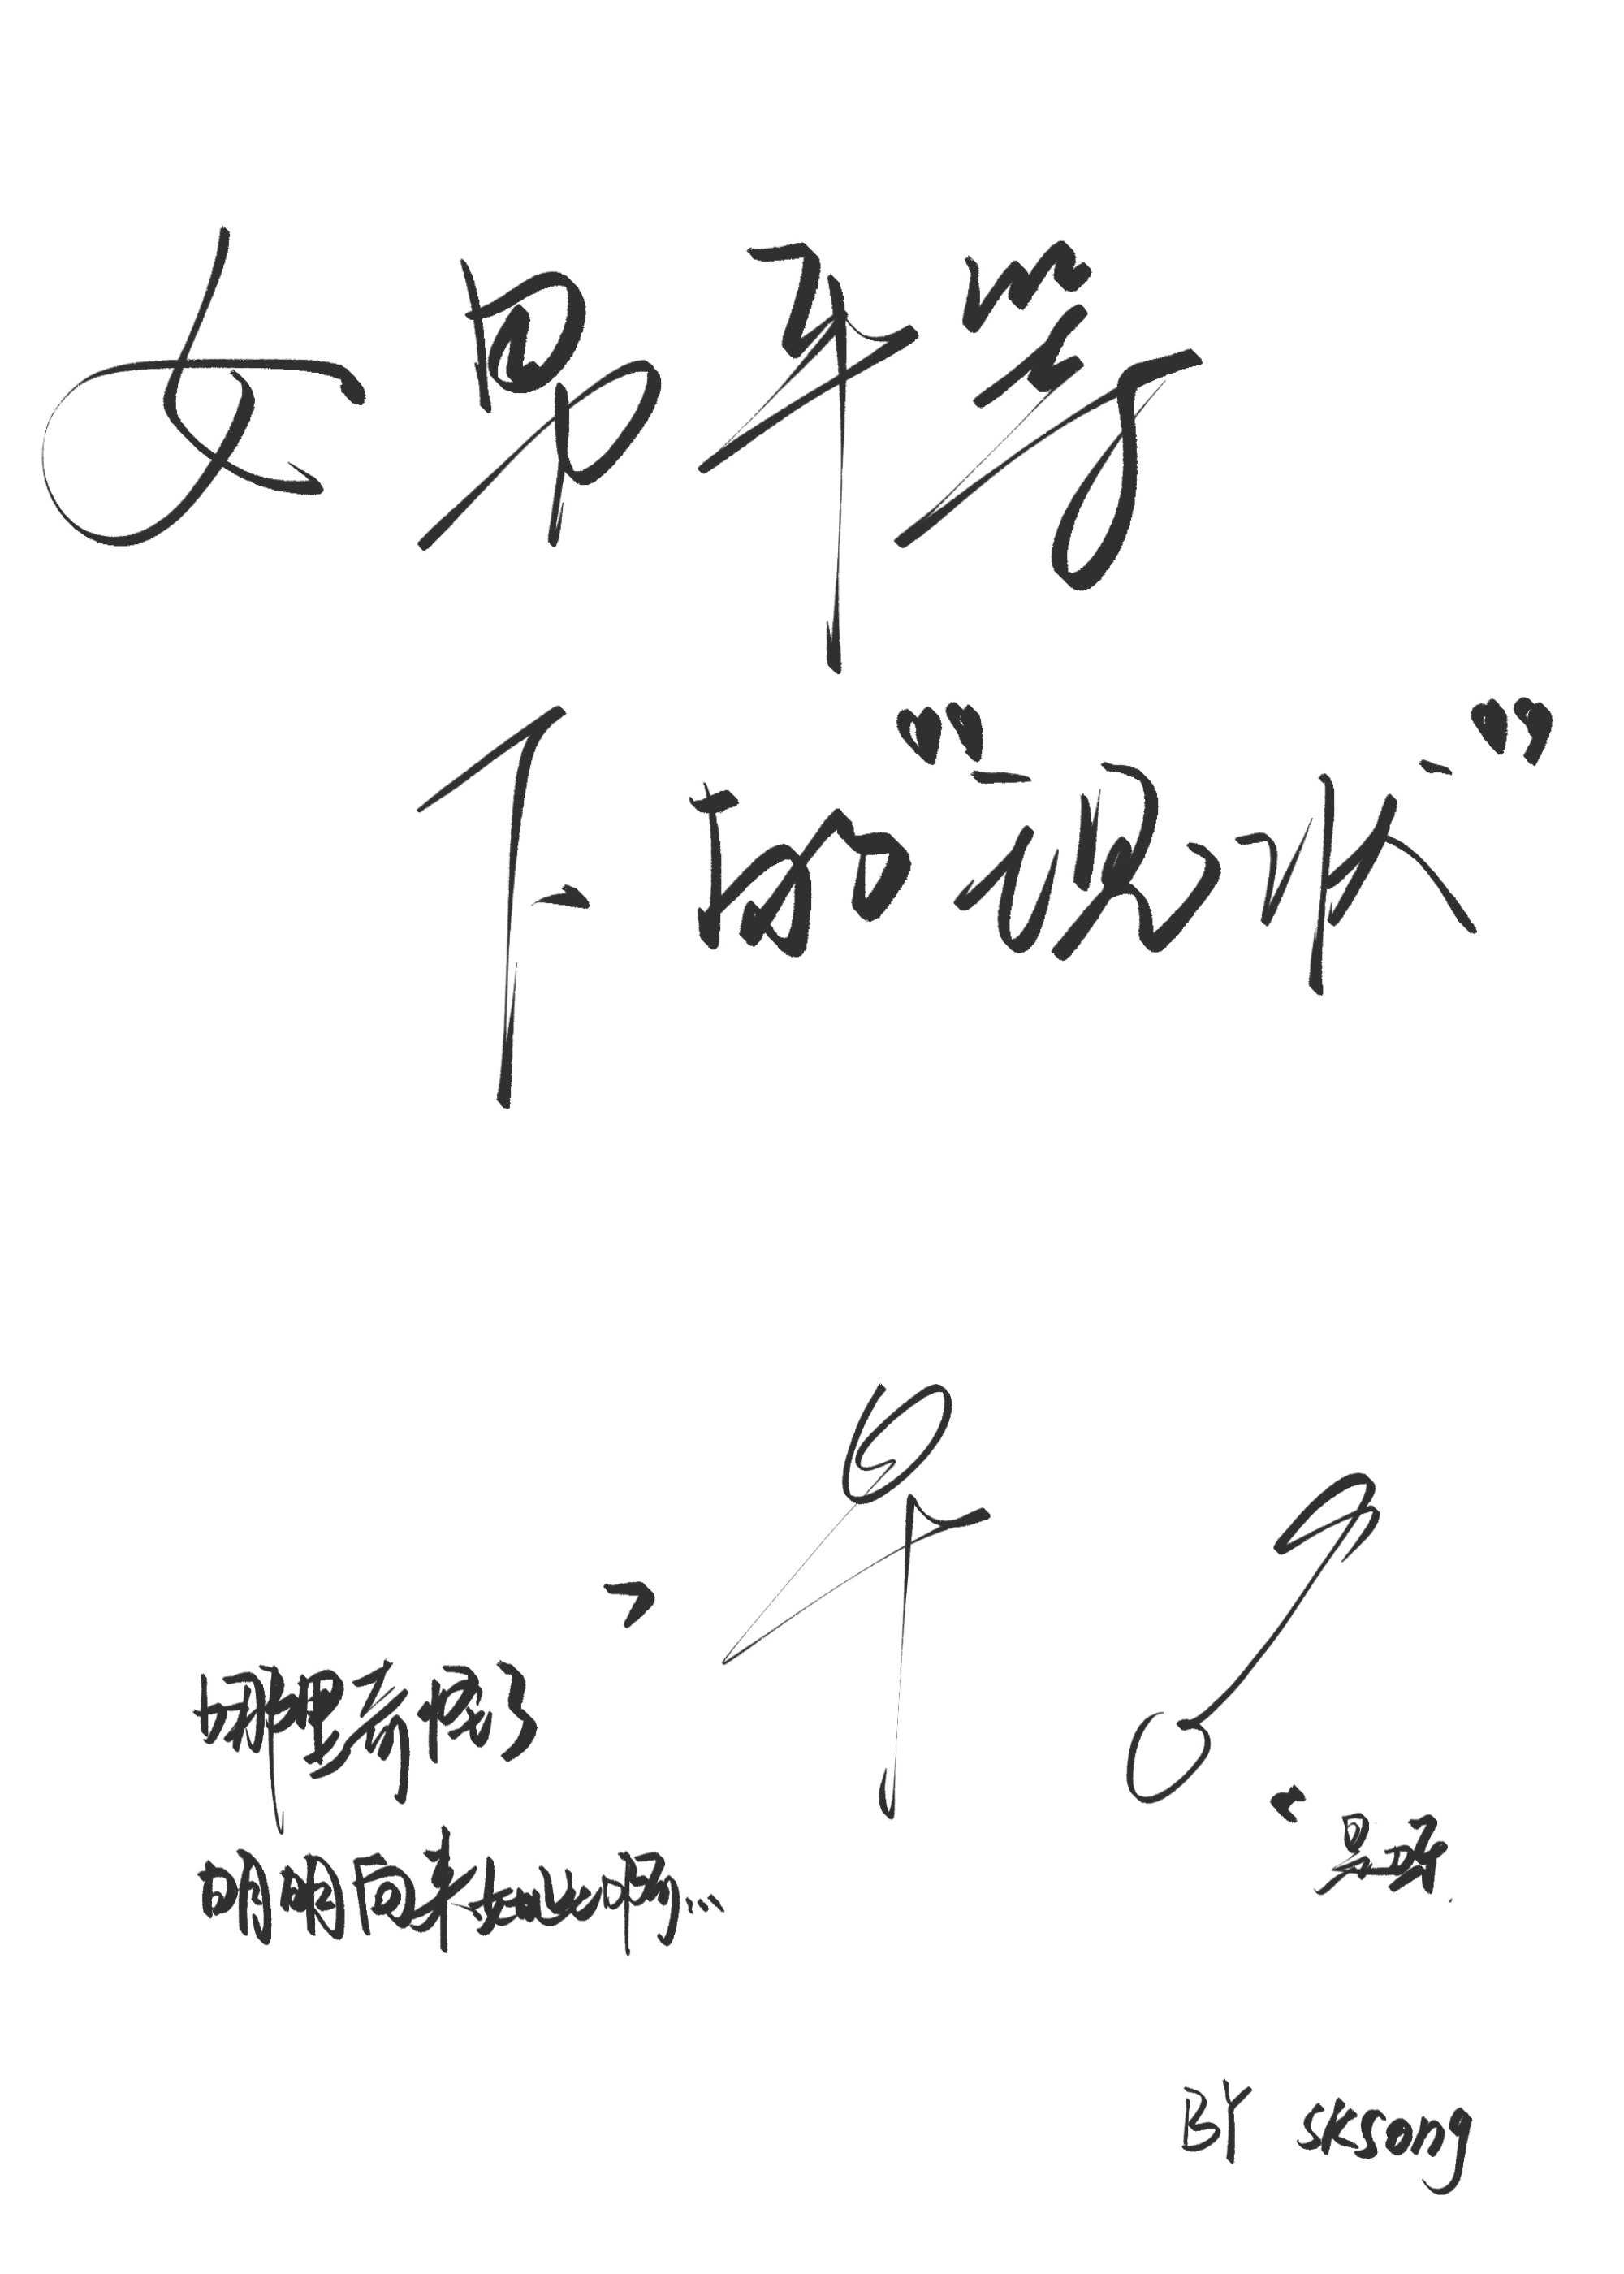 女男平等
下的“现状”
哪里奇怪了
明明向来如此啊…
是呀.
BY sksong